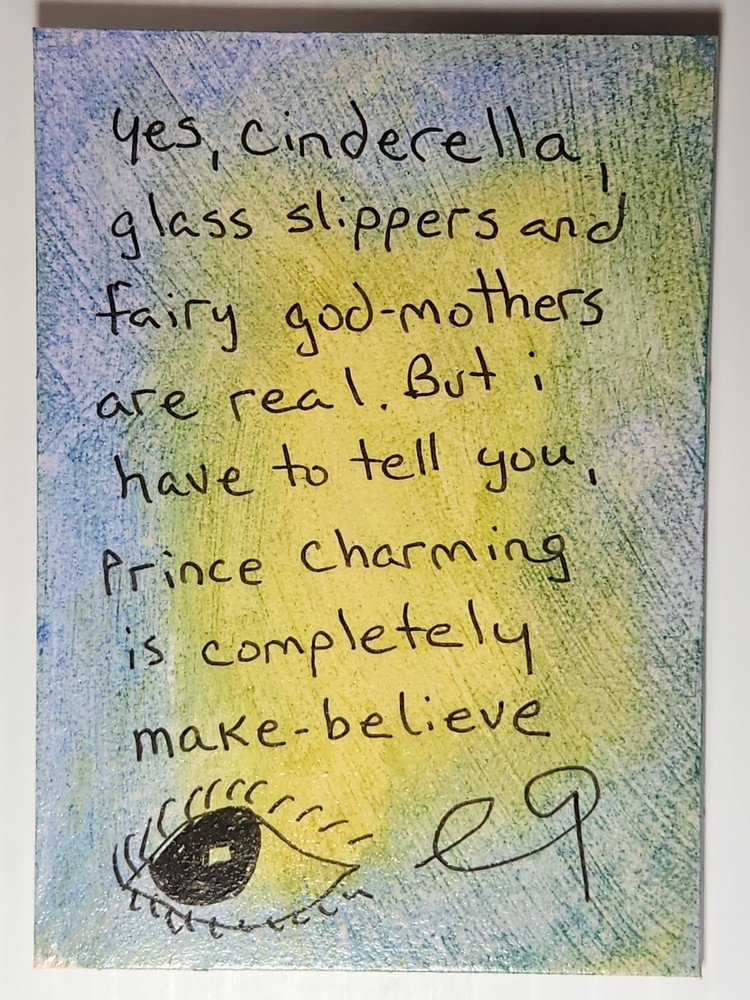 yes, cinderella,
glass slippers and
fairy god-mothers
are real. But i
have to tell you,
Prince Charming
is completely
make-believe